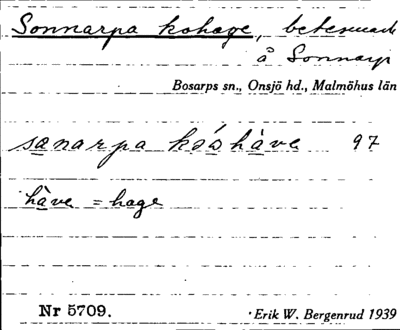 Sonnarpa kohage, betesmark
å Sonnarp
Bosarps sn., Onsjö hd., Malmöhus län
sanarpa koáshàve 97
hàve = hage
Nr 5709.
Erik W. Bergenrud 1939